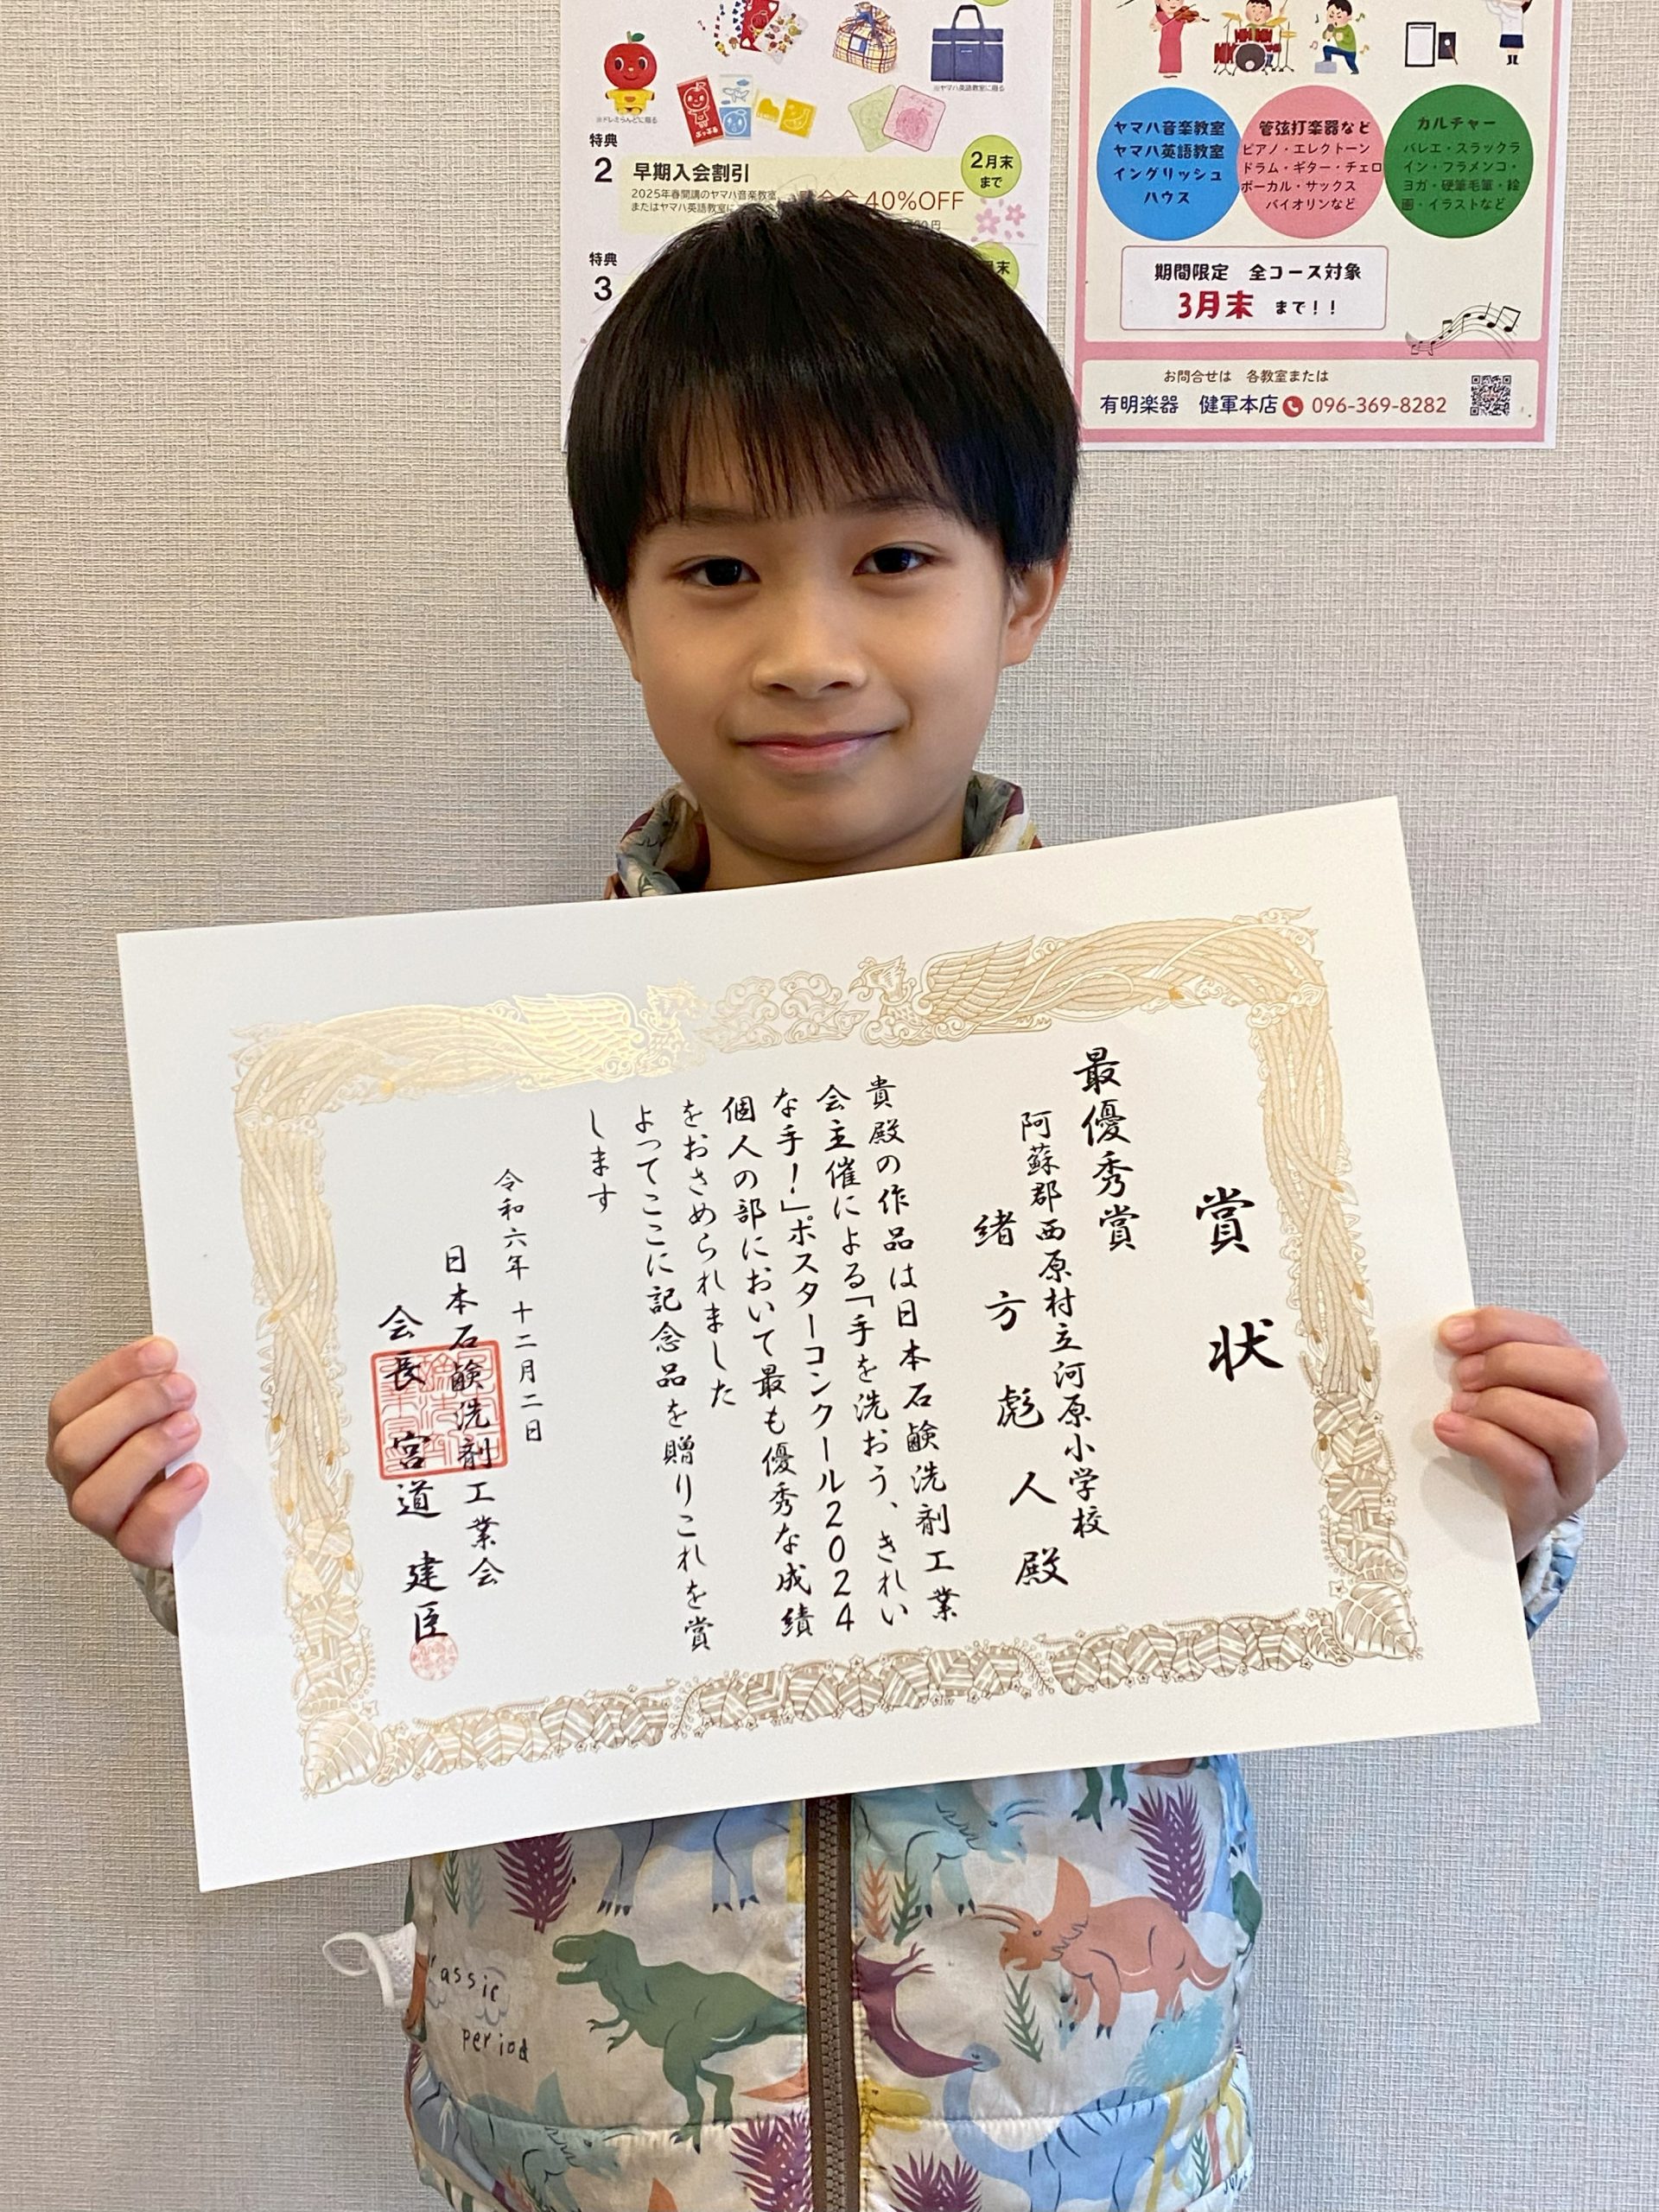 特典
2
早期入会割引
2025年春開講のヤマハ音楽教室
またはヤマハ英語教室に
40%OFF
2月末
まで
特典
3
末
※ドレミらんどに限る
※ヤマハ英語教室に限る
ヤマハ音楽教室
ヤマハ英語教室
イングリッシュ
ハウス
管弦打楽器など
ピアノ・エレクトーン
ドラム・ギター・チェロ
ボーカル・サックス
バイオリンなど
カルチャー
バレエ・スラックラ
イン・フラメンコ・
ヨガ・硬筆毛筆・絵
画・イラストなど
期間限定 全コース対象
3月末 まで!!
お問合せは 各教室または
有明楽器 健軍本店 096-369-8282
賞状
最優秀賞
阿蘇郡西原村立河原小学校
緒方彪人殿
貴殿の作品は日本石鹸洗剤工業
会主催による「手を洗おう、きれい
な手!」ポスターコンクール2024
個人の部において最も優秀な成績
をおさめられました
よってここに記念品を贈りこれを賞
します
令和六年十二月二日
日本石鹸洗剤工業会
会長 宮道建臣
assic
period